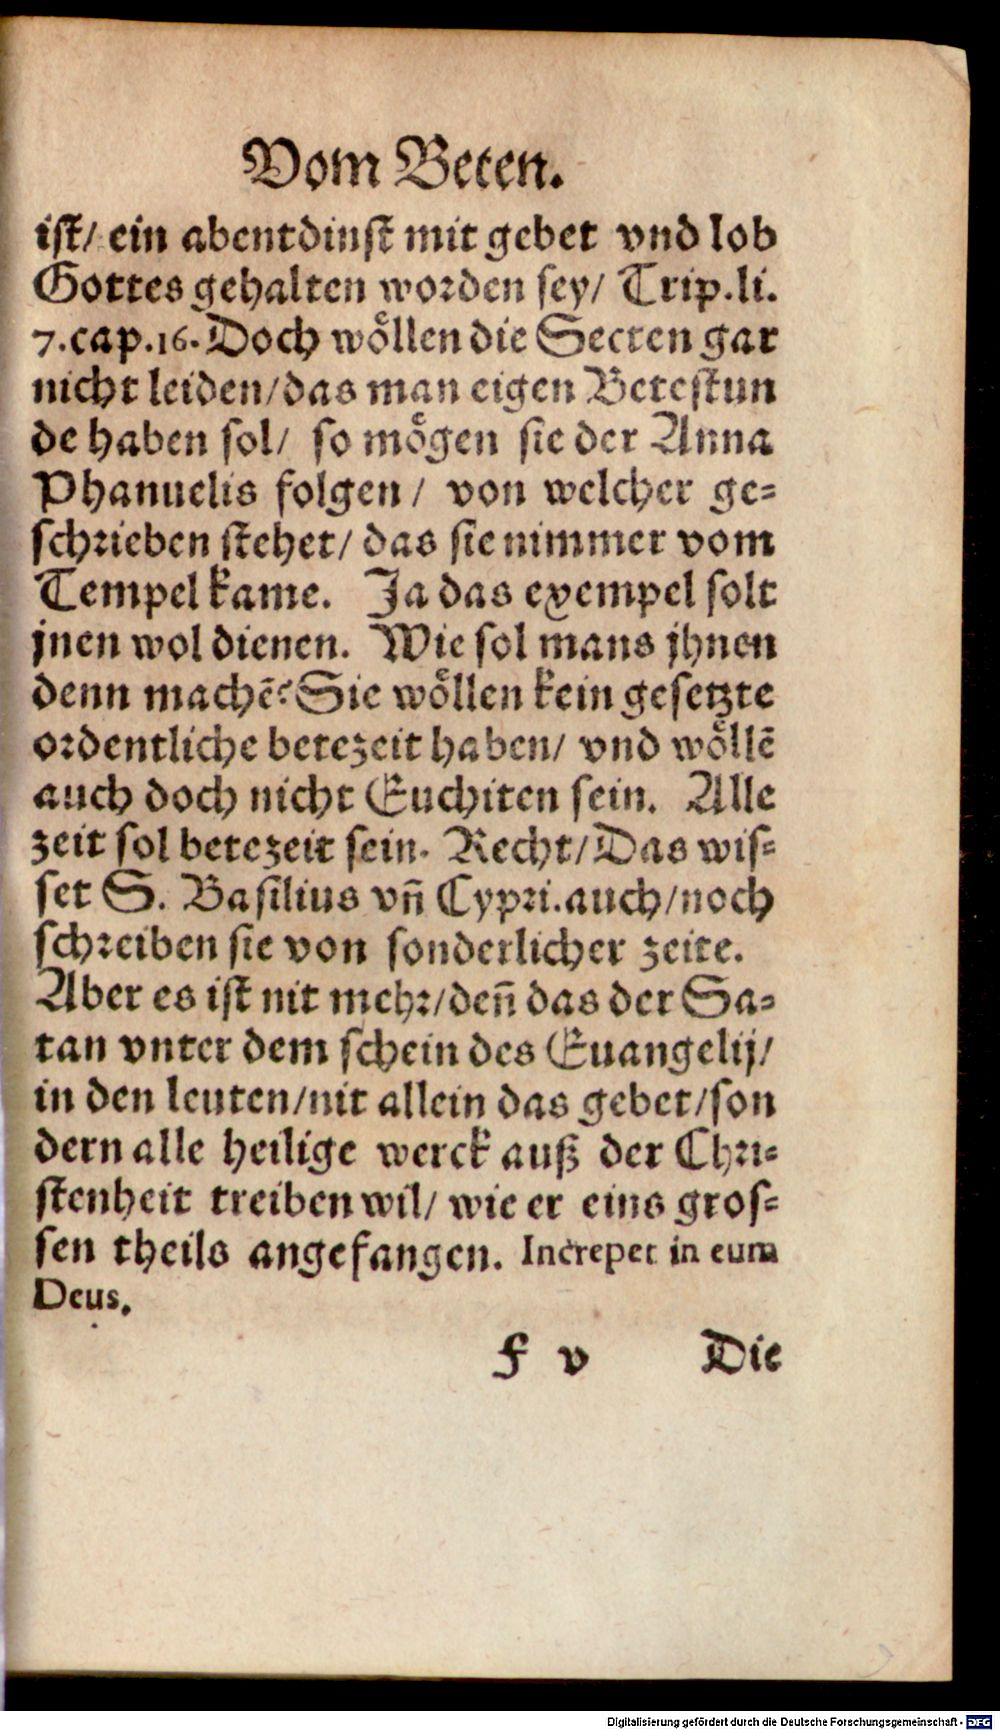 Vom Beten.
ist/ ein abentdinst mit gebet vnd lob
Gottes gehalten worden sey/ Trip.li.
7.cap.16. Doch wöllen die Secten gar
nicht leiden/das man eigen Betestun
de haben sol/ so mögen sie der Anna
Phanuelis folgen/ von welcher ge=
schrieben stehet/ das sie nimmer vom
Tempel kame. Ja das exempel solt
jnen wol dienen. Wie sol mans jhnen
denn machẽ? Sie wöllen kein gesetzte
ordentliche betezeit haben/ vnd wöllẽ
auch doch nicht Euchiten sein. Alle
zeit sol betezeit sein. Recht/Das wis=
set S. Basilius vñ Cypri.auch/noch
schreiben sie von sonderlicher zeite.
Aber es ist nit mehr/deñ das der Sa=
tan vnter dem schein des Euangelij/
in den leuten/nit allein das gebet/son
dern alle heilige werck auß der Chri=
stenheit treiben wil/ wie er eins gros=
sen theils angefangen. Increpet in eum
Deus.
f v Die
Digitalisierung gefördert durch die Deutsche Forschungsgemeinschaft - DFG